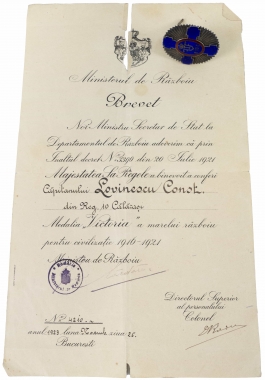 Ministerul de Războiu
Brevet
Noi Ministru Secretar de Stat la
Departamentul de Războiu adeverim că prin
Inaltul decret No. din 20 Iulie 1921
Majestatea Sa Regele a binevoit a conferi
Căpitanului Lovinescu Const.
din Reg. 10 Călărași
Medalia "Victoria" a marelui războiu
pentru civilizație 1916-1921
Ministru de Războiu
Directorul Superior
al personalului
Colonel
No.
anul 1923 luna ziua 25
București